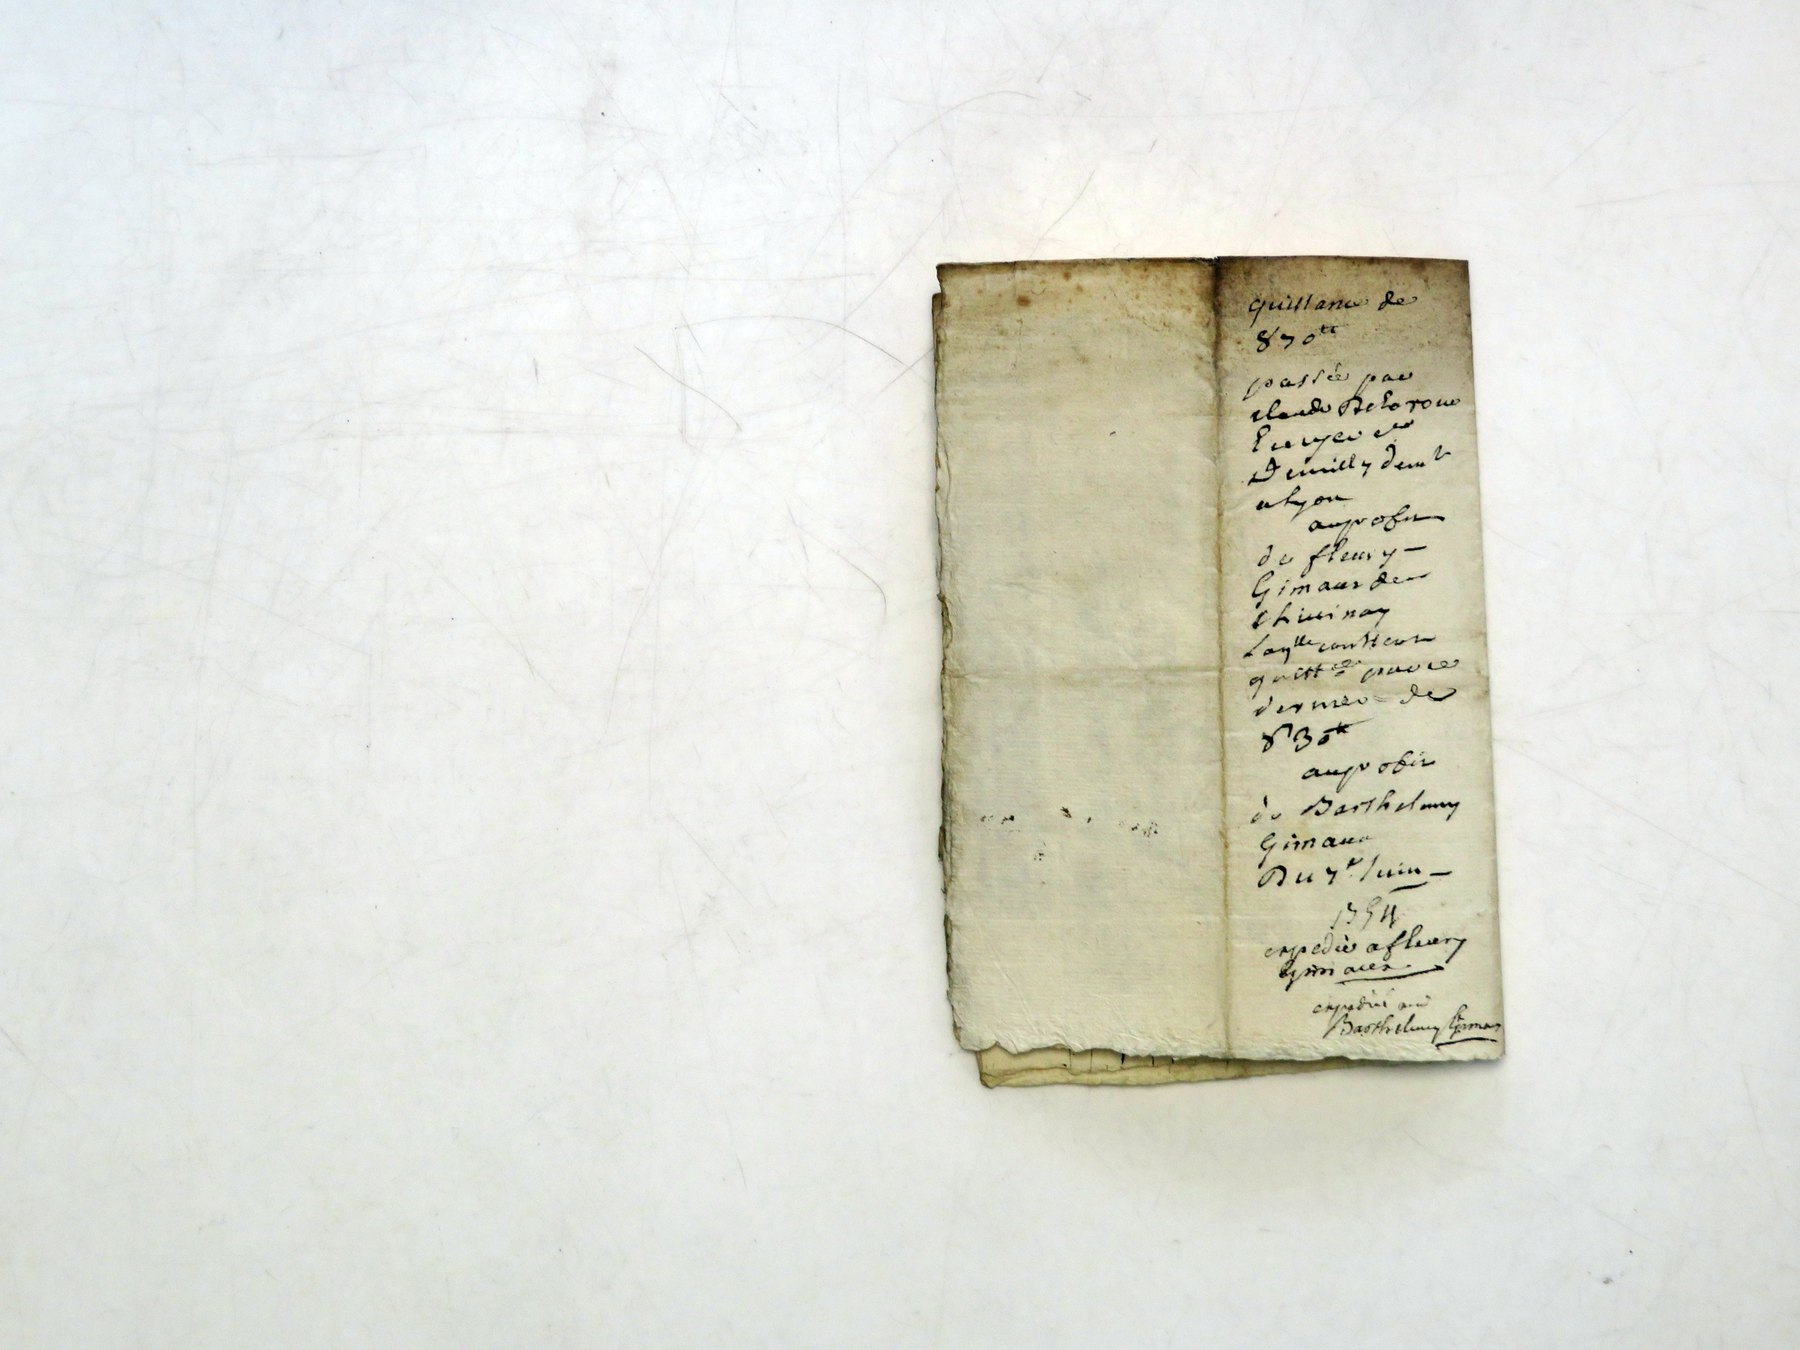 quittance de
870^tt
passée par
claude Delaroue
Ecuyer
demt
a Lyon
au profit
de fleury
Gimaux de
Chivinay
Laqlle contient
quitt^ce par ce
dernier de
830^tt
au profit
de Barthelemy
Gimaux
Du 7^e Juin
expedié a fleury
Gimaux
expedié
Barthelemy Gimaux